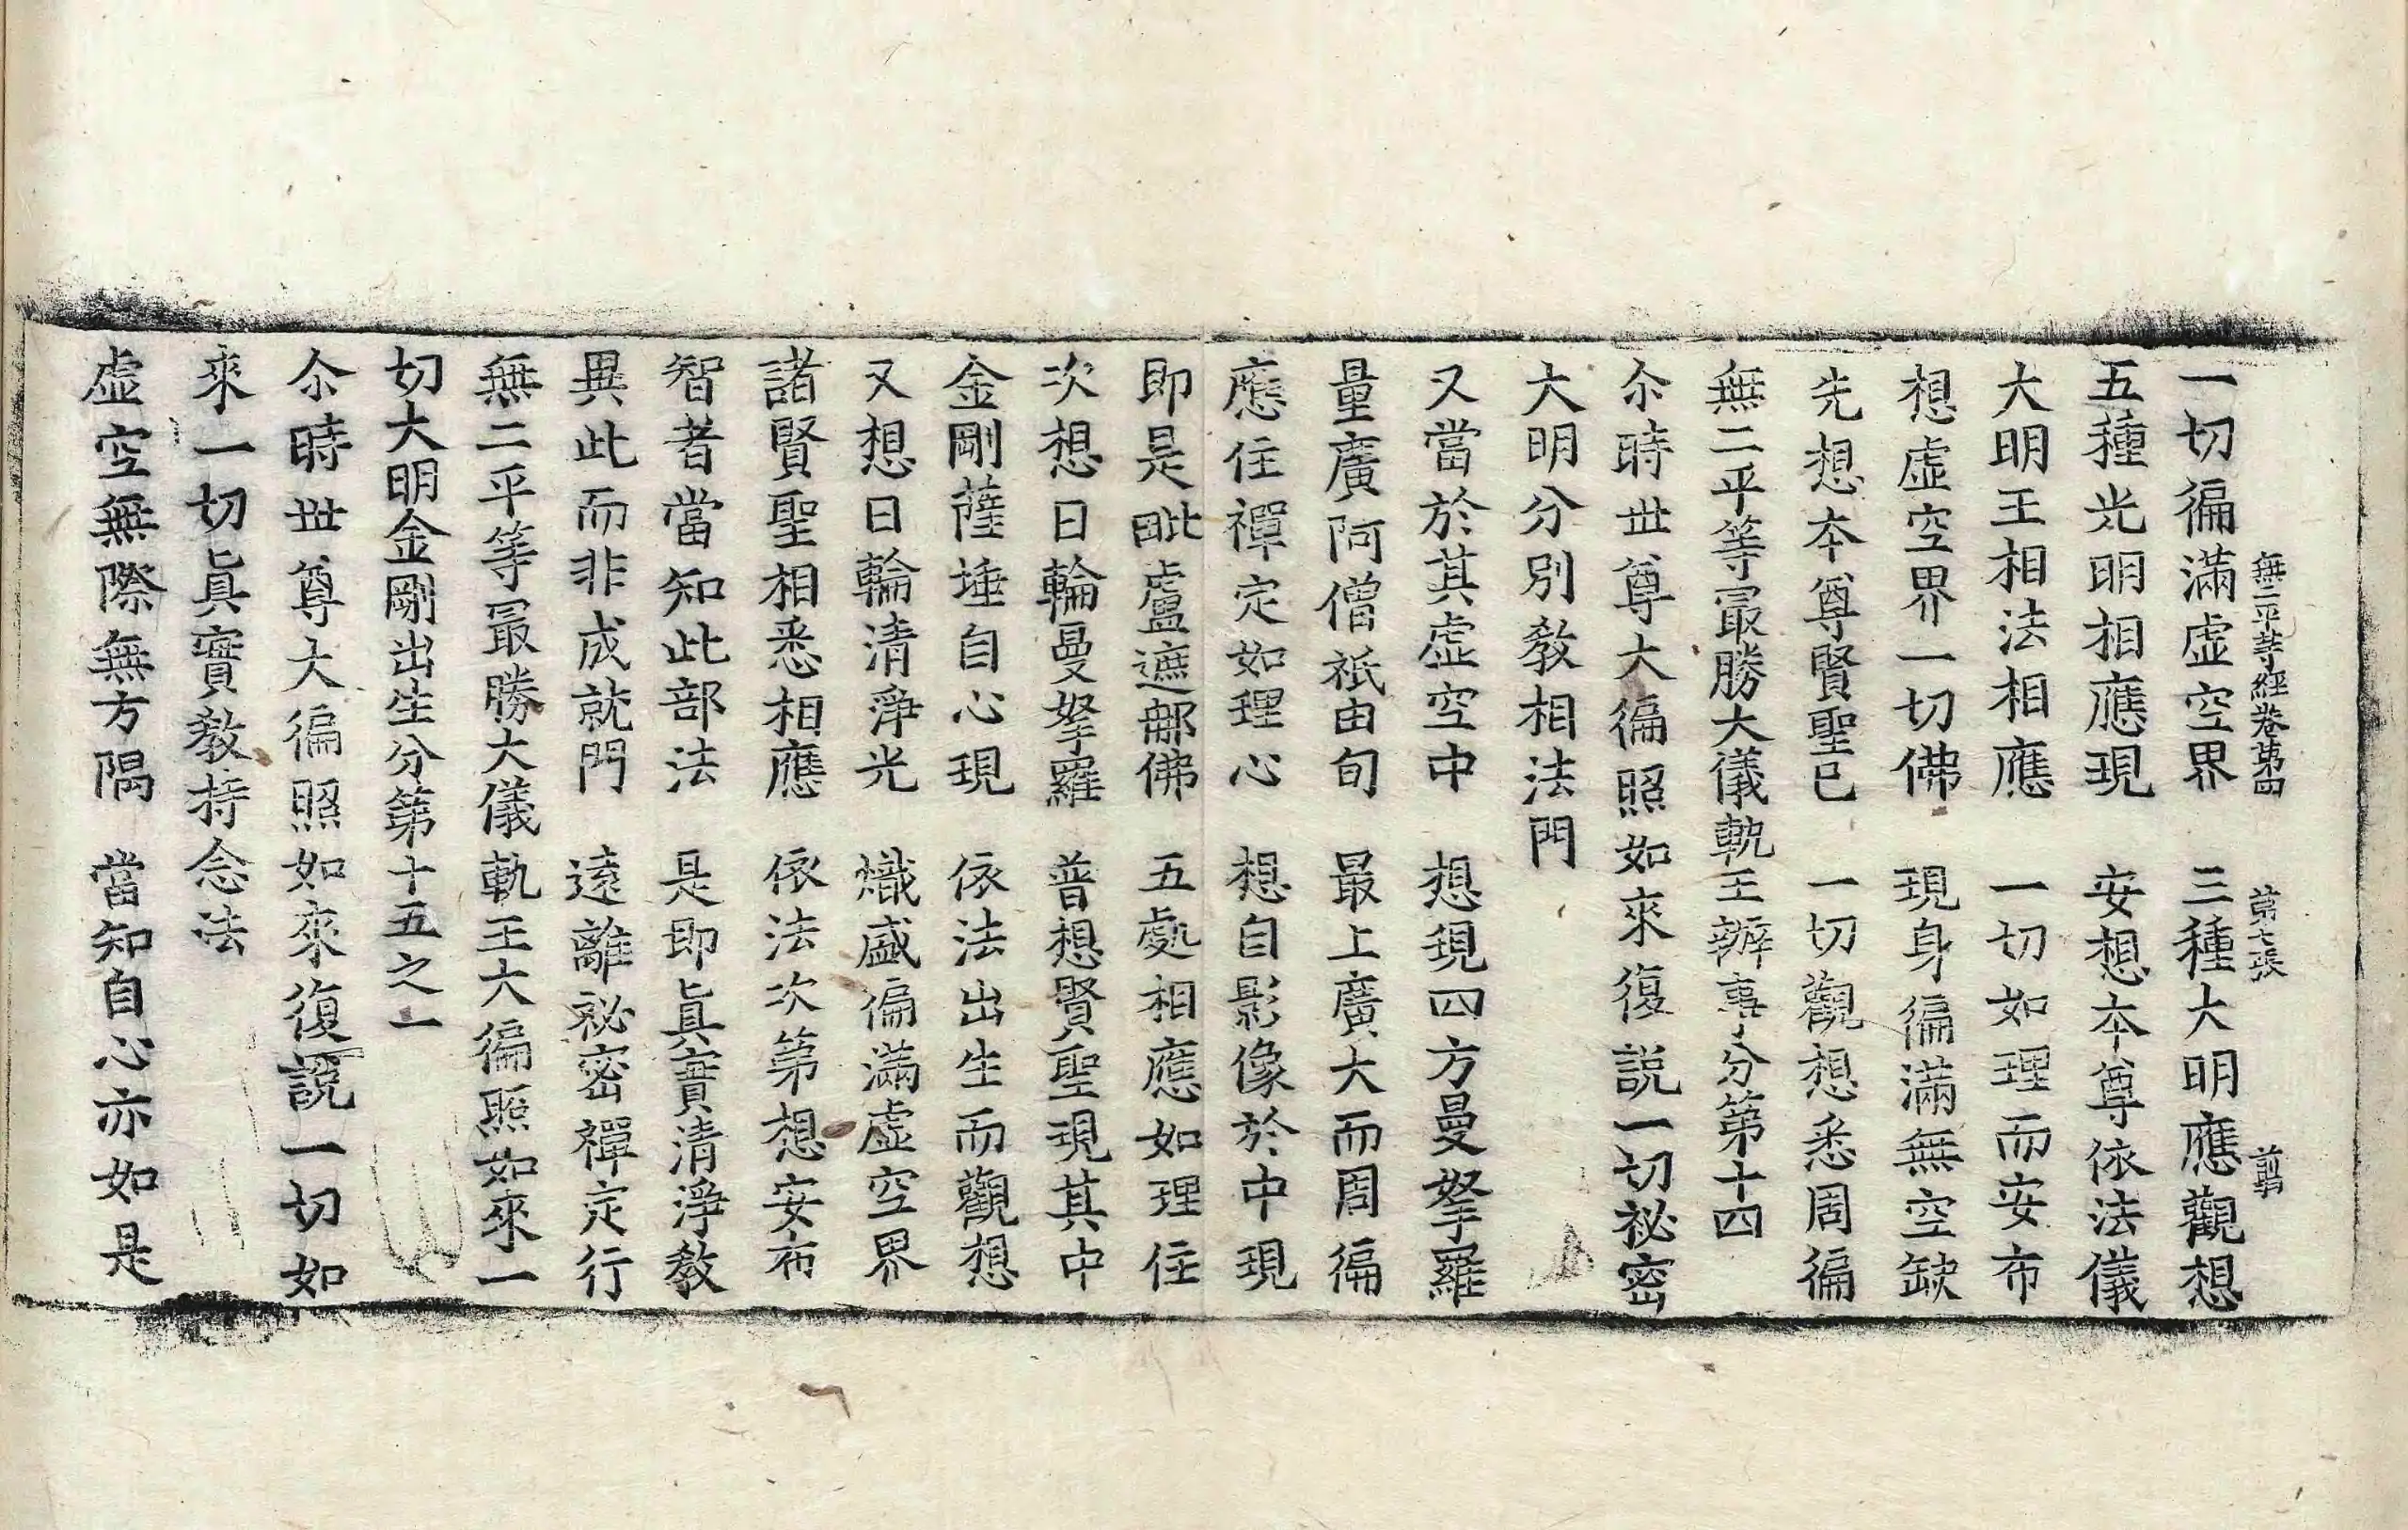 無二平等經卷第四 第七張 翦
一切徧滿虛空界 三種大明應觀想
五種光明相應現 安想本尊依法儀
大明王相法相應 一切如理而安布
想虛空界一切佛 現身徧滿無空缺
先想本尊賢聖已 一切觀想悉周徧
無二平等最勝大儀軌王辦事分第十四
尒時世尊大徧照如來復說一切祕密
大明分別敎相法門
又當於其虛空中 想現四方曼拏羅
量廣阿僧祇由旬 最上廣大而周徧
應住禪定如理心 想自影像於中現
即是毗盧遮那佛 五處相應如理住
次想日輪曼拏羅 普想賢聖現其中
金剛薩埵自心現 依法出生而觀想
又想日輪清淨光 熾盛徧滿虛空界
諸賢聖相悉相應 依法次第想安布
智者當知此部法 是即眞實清淨敎
異此而非成就門 遠離祕密禪定行
無二平等最勝大儀軌王大徧照如來一
切大明金剛出生分第十五之一
尒時世尊大徧照如來復說一切如
來一切眞實敎持念法
虛空無際無方隅 當知自心亦如是